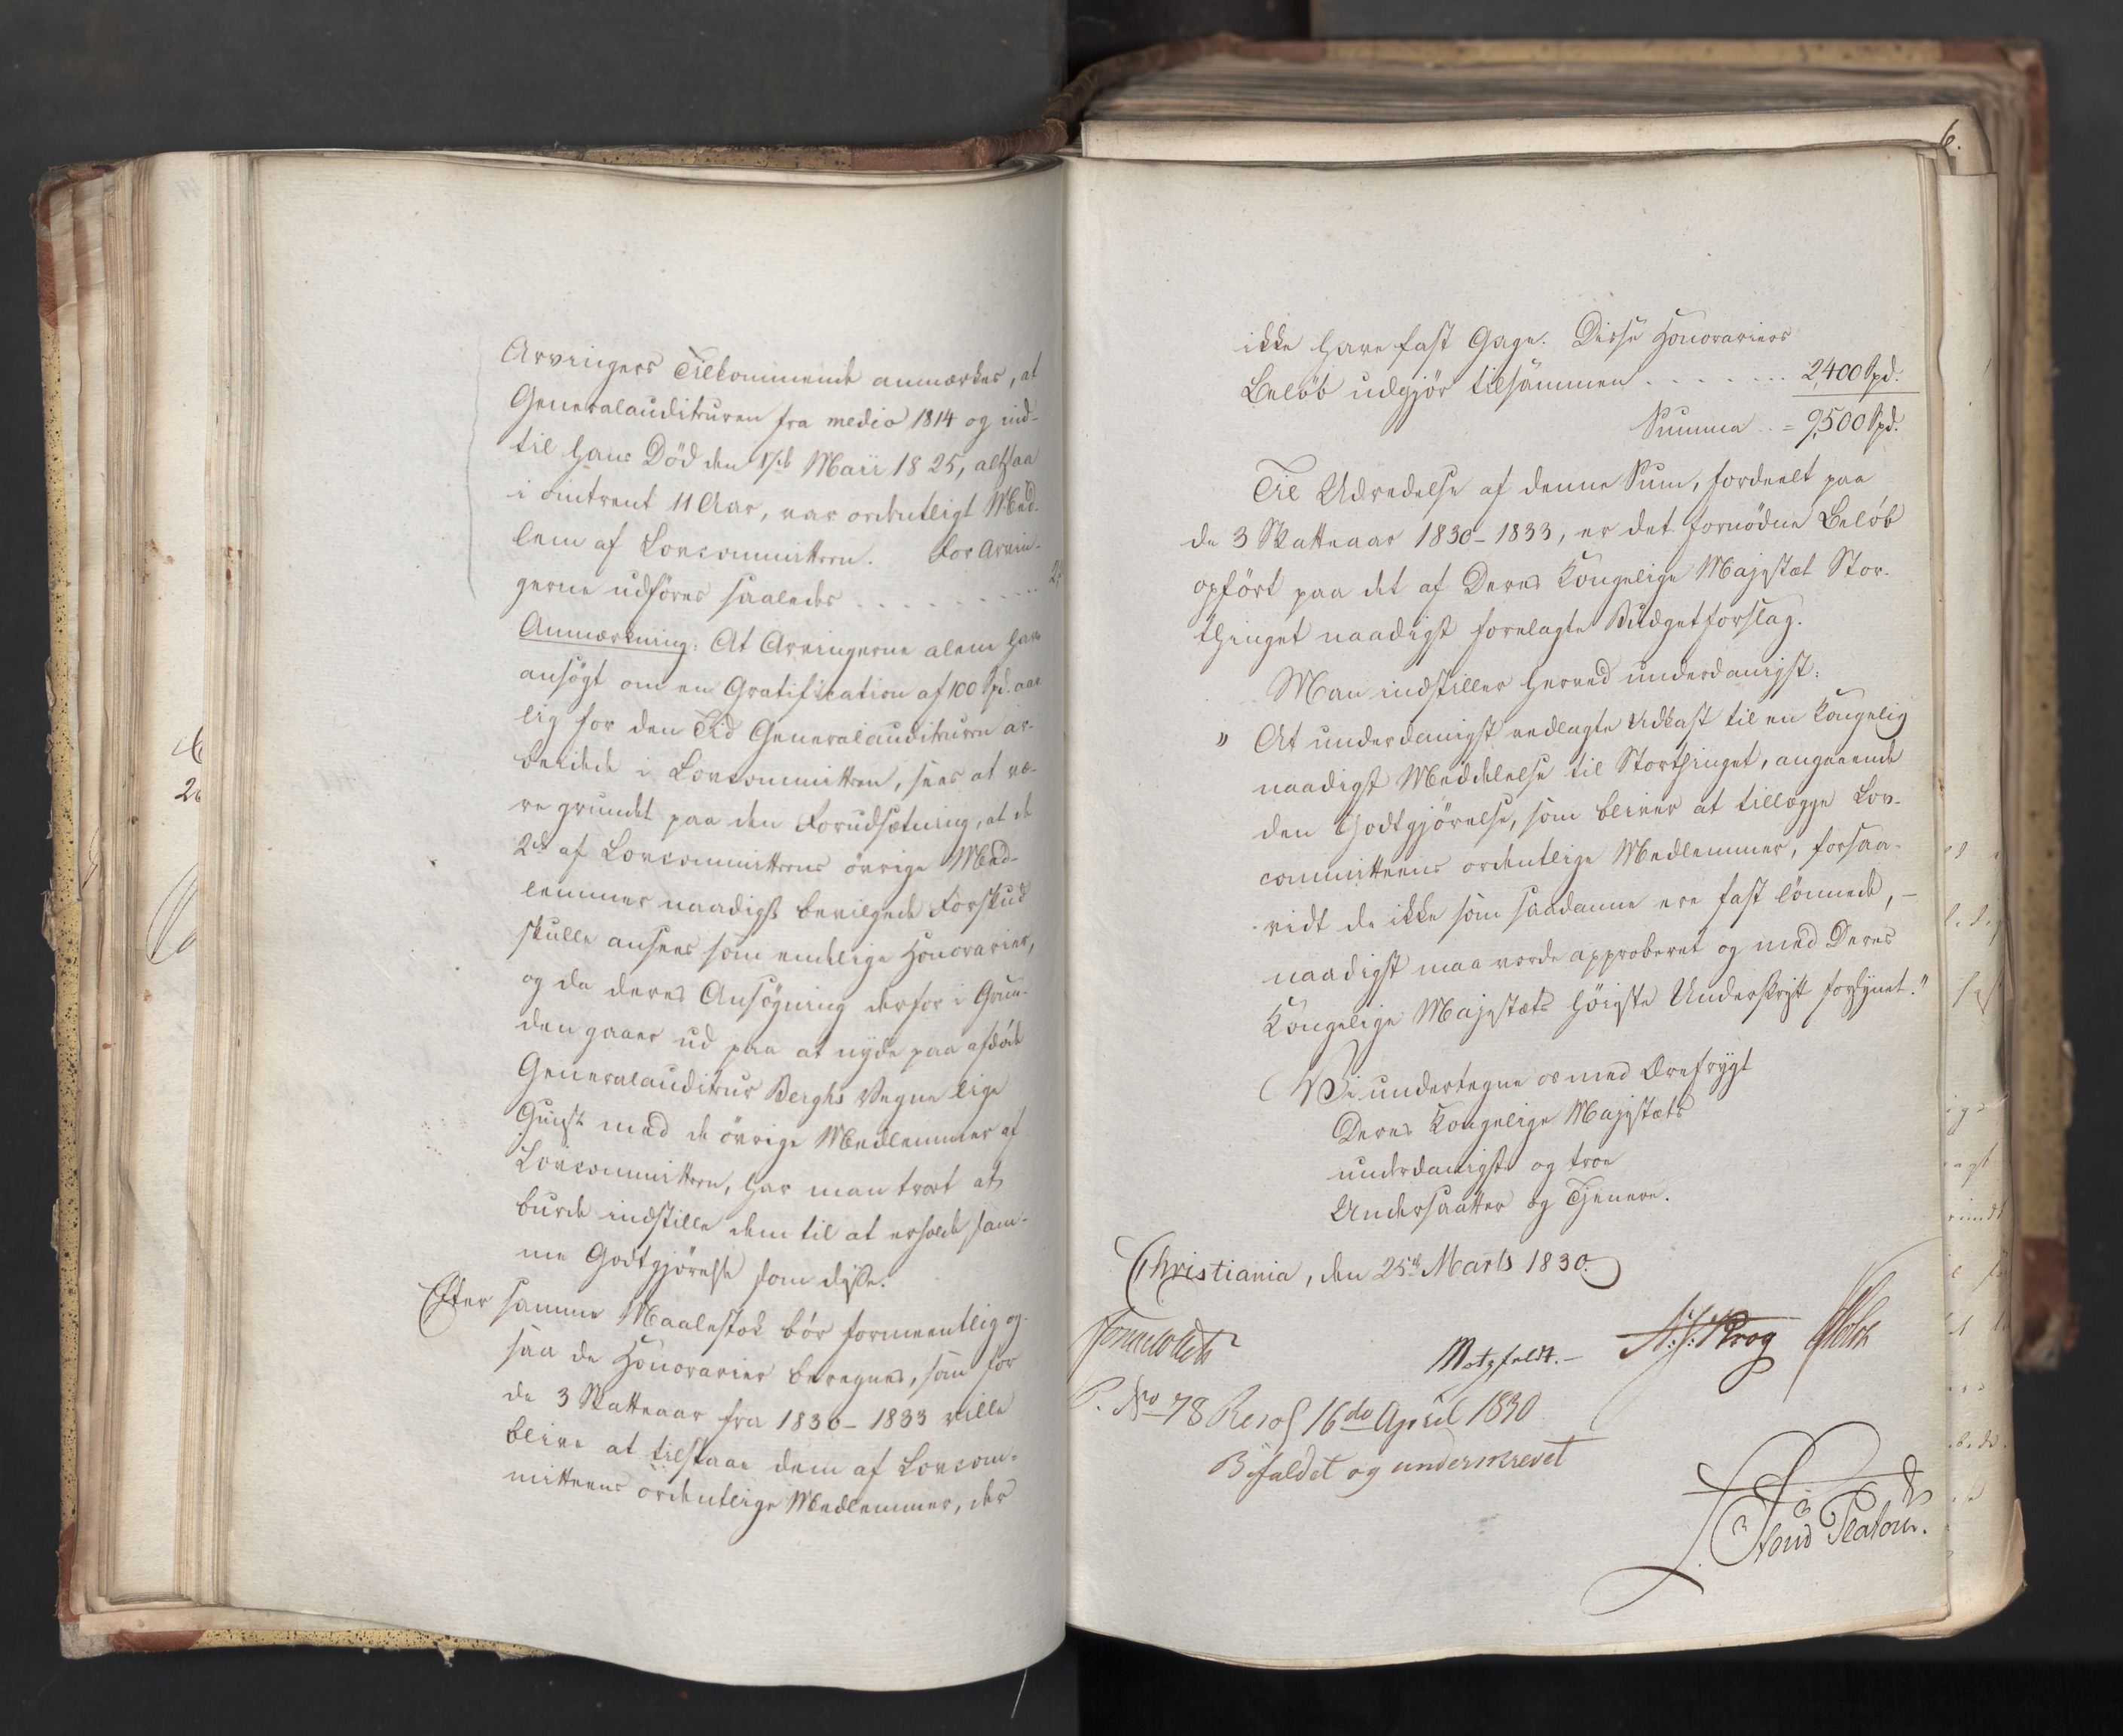 Arvingers Tilkommende anmærkes, at
Generalauditeuren fra medio 1814 og ind-
til hans Død den 17de Maii 1825, altsaa
i omtrent 11 Aar, var ordentligt Med-
lem af Lovcommitteen. For Arvin-
gerne udføres saaledes . . . . . . . . . .
Anmærkning: At Arvingerne alene have
ansøgt om en Gratification af 100 Spd. aar-
lig for den Tid Generalauditeuren ar-
beidede i Lovcommitteen, sees at væ-
re grundet paa den Forudsætning, at de
2de af Lovcommitteens øvrige Med-
lemmer naadigst bevilgede Forskud
skulle ansees som endelige Honorarier,
og da deres Ansøgning derfor i Grun-
den gaaer ud paa at nyde paa afdøde
Generalauditeur Berghs Vegne lige
Gunst med de øvrige Medlemmer af
Lovcommitteen, har man troet at
burde indstille dem til at erholde sam-
me Godtgjørelse som disse.
Efter samme Maalestok bør formeentlig og-
saa de Honorarier beregnes, som for
de 3 Skatteaar fra 1830-1833 ville
blive at tilstaae dem af Lovcom-
mitteens ordentlige Medlemmer, der
6.
ikke have fast Gage. Disse Honorariers
Beløb udgjør tilsammen . . . . . . . 2,400 Spd.
Summa . . = 9,500 Spd.
Til Udredelse af denne Sum, fordeelt paa
de 3 Skatteaar 1830-1833, er det fornødne Beløb
opført paa det af Deres Kongelige Majestæt Stor-
thinget naadigst forelagte Budgetforslag.
Man indstiller herved underdanigst:
" At underdanigst vedlagte Udkast til en Kongelig
naadigst Meddelelse til Storthinget, angaaende
den Godtgjørelse, som bliver at tillægge Lov-
committeens ordentlige Medlemmer, forsaa-
vidt de ikke som saadanne ere fast lønnede, -
naadigst maa vorde approberet og med Deres
Kongelige Majestæts høieste Underskrift forsynet."
Vi undertegne os med Ærefrygt
Deres Kongelige Majestæts
underdanigste og troe
Undersaatter og Tjenere.
Christiania, den 25de Marts 1830.
Motzfeldt. - Krog Holst
P. No 78 Resol 16de April 1830
Bifaldet og underskrevet